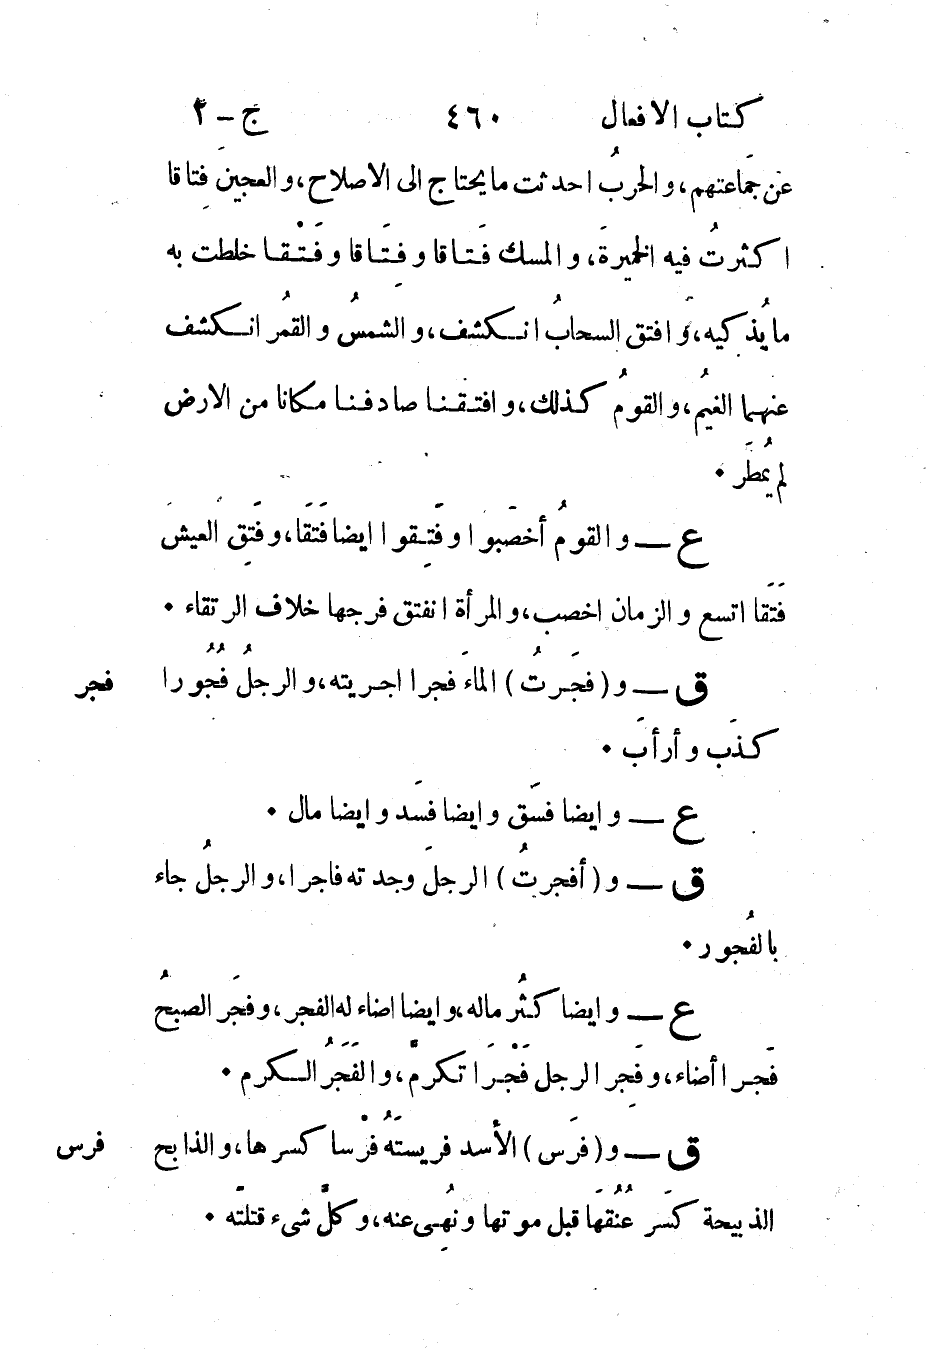 كتاب الافعال ٤٦٠ ج – ٢
عَن جَمَاعتهم، والحربُ احدثت مايحتاج الى الاصلاح، والعجينَ فِتاقا
اكثرتُ فيه الخميرةَ، والمسك فَتاقا وفِتَاقا وفَتْقا خلطت به
مايُذكيه، وَافتق السحابُ انكشف، والشمسُ والقمُر انكشف
عنهما الغيمُ، والقومُ كذلك، وافتقنا صادفنا مكانا من الارض
لم يُمطَر ٠
ع — والقومُ أخصَبوا وفَتِقوا ايضا فَتَقا، وفَتِق العيشُ
فَتَقا اتسع والزمان اخصب، والمرأة انفتق فرجها خلاف الرتقاء ٠
ق — و (فجَرتُ) الماءَ فجرا اجريته، والرجلُ فُجُورا فجر
كذَب وأرأبَ ٠
ع — وايضا فسَق وايضا فسَد وايضا مال ٠
ق — و (أفجرتُ) الرجلَ وجدته فاجرا، والرجلُ جاء
بالفُجور ٠
ع — وايضا كثُر ماله، وايضا اضاء له الفجر، وفجَر الصبحُ
فَجرا أضاء، وفَجِر الرجل فَجْرَا تكرمَّ، والفَجَرُ الكرم ٠
ق — و (فرَس) الأسد فريستَهُ فرْسا كسرها، والذابح فرس
الذبيحة كَسَر عُنُقَها قبل موتها ونُهِى عنه، وكلَّ شىء قتلتَه ٠